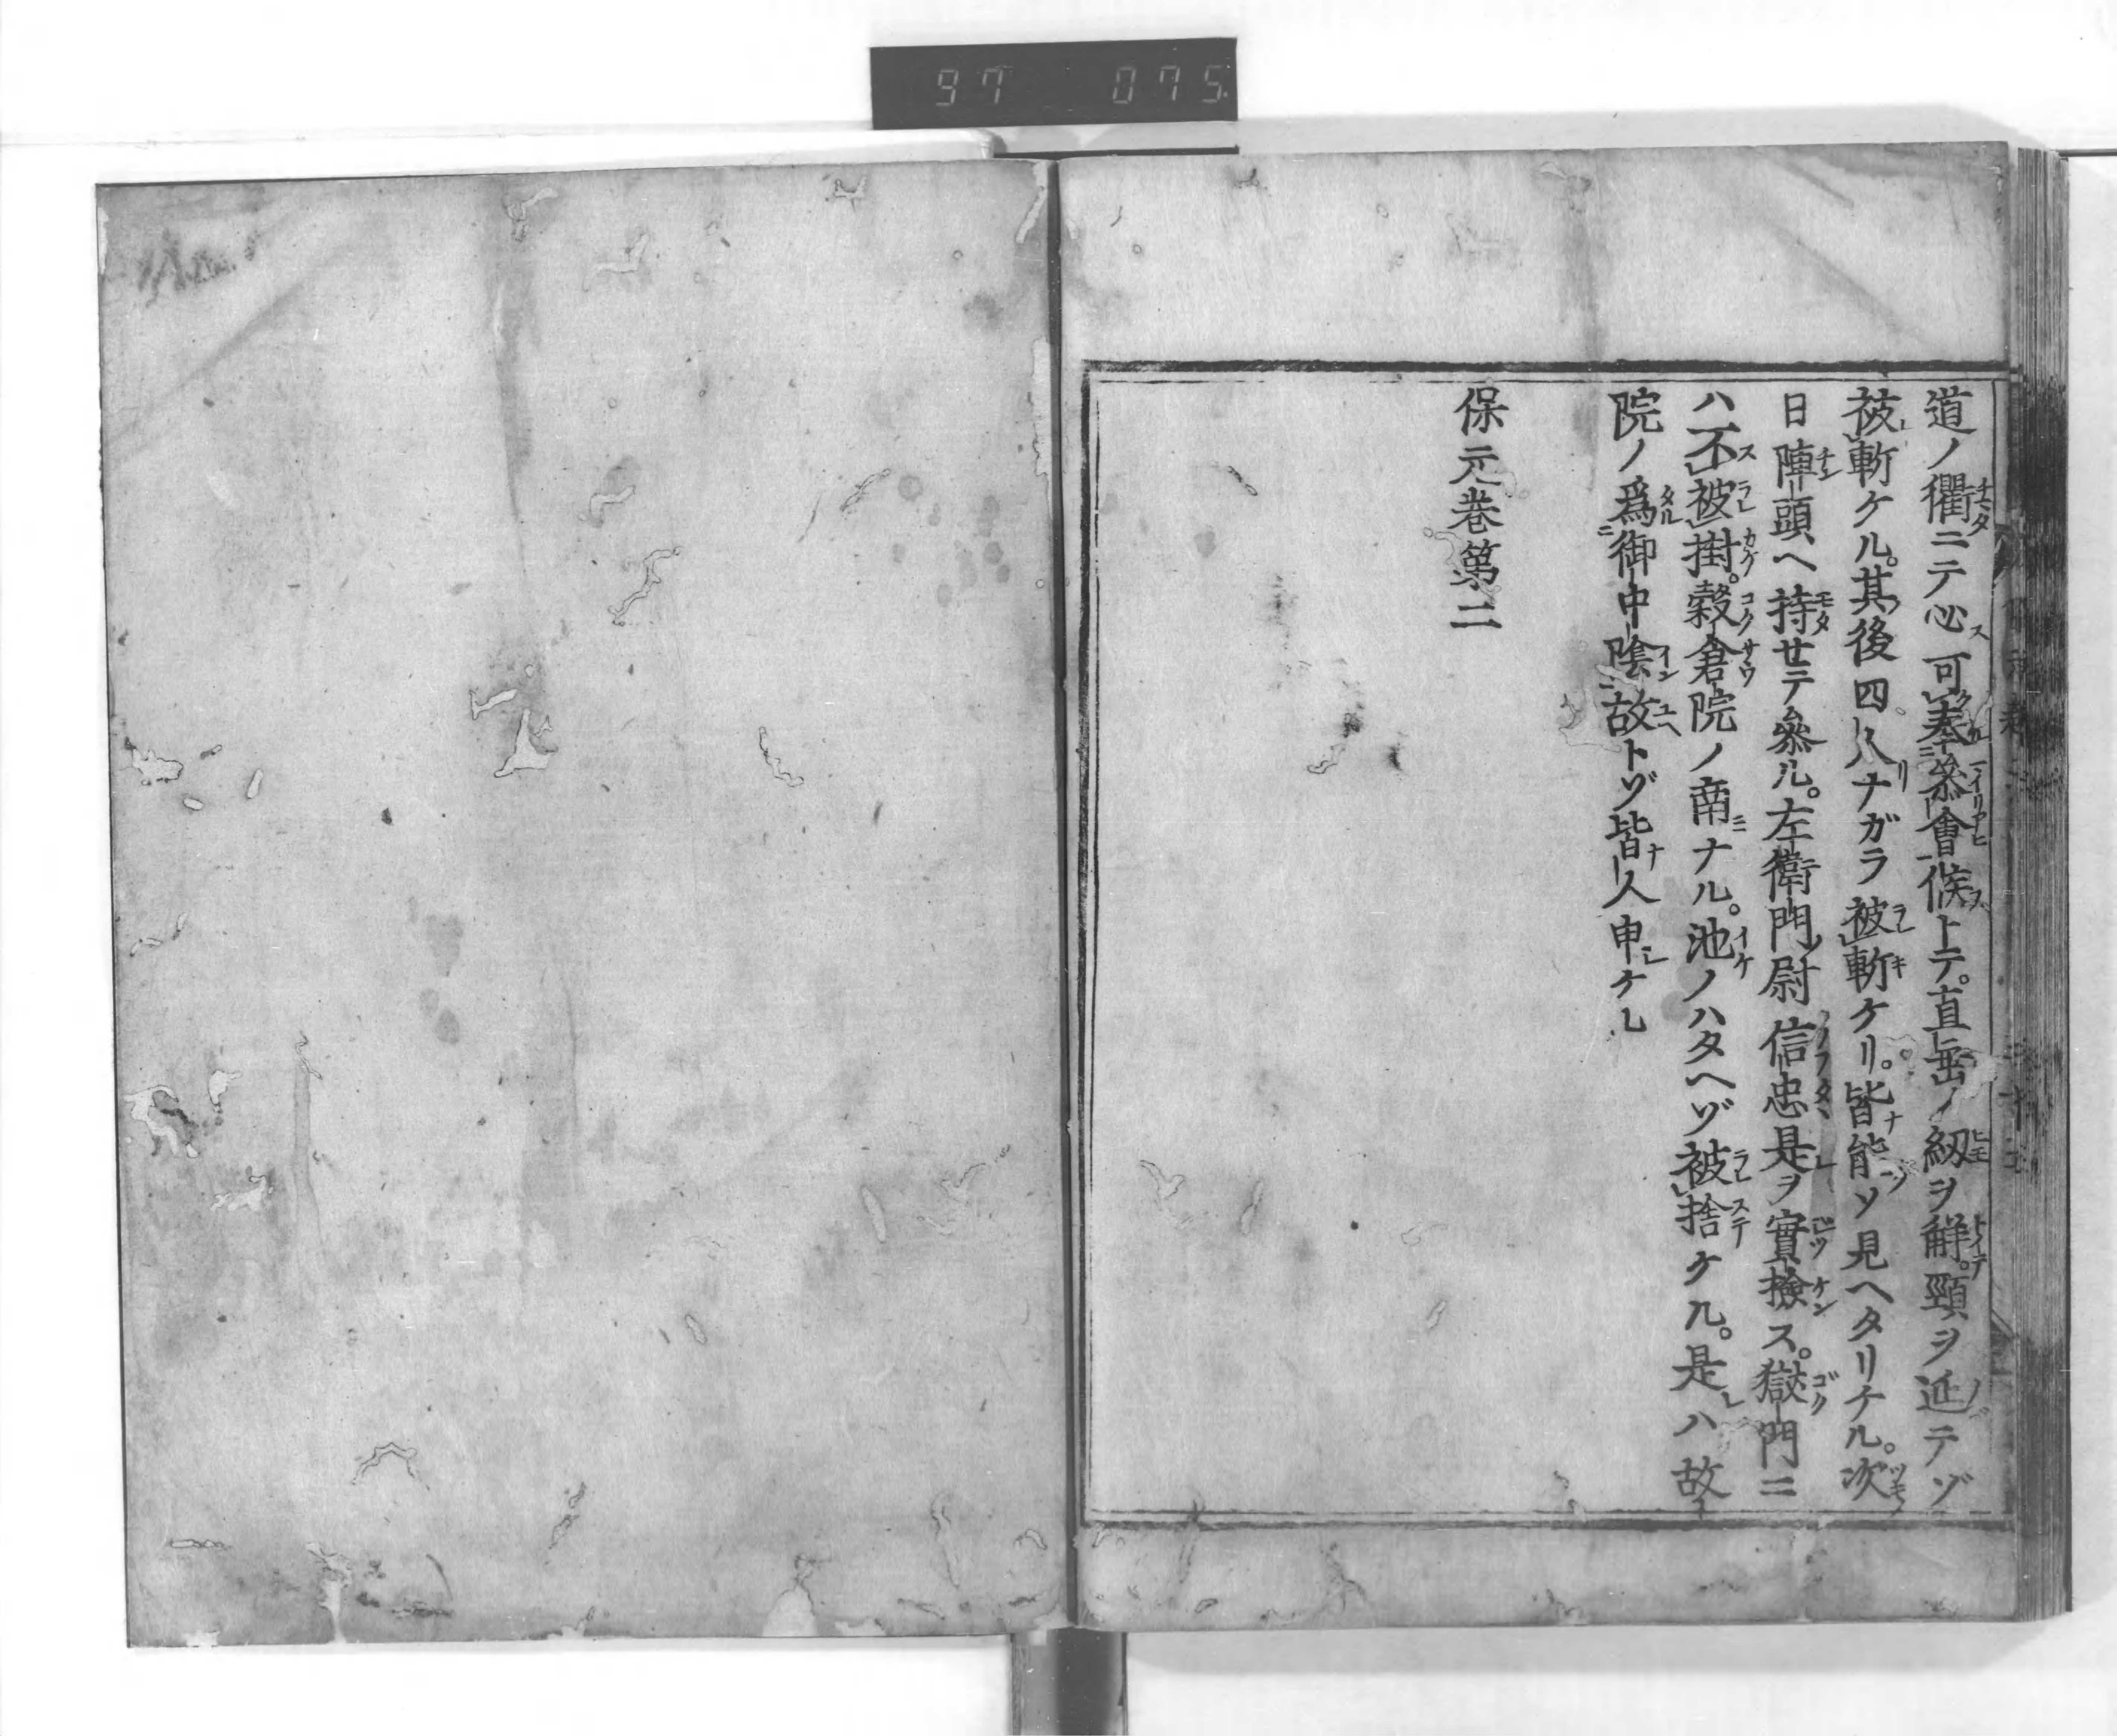 97 075
道ノ衢ニテ必可奉参會候トテ。直垂ノ紐ヲ解。頸ヲ延テゾ
被斬ケル。其後四人ナガラ被斬ケリ。皆能ソ見ヘタリケル。次
日陣頭ヘ持セテ參ル。左衛門尉信忠是ヲ實撿ス。獄門ニ
ハ不被掛。穀倉院ノ南ナル。池ノハタヘゾ被捨ケル。是ハ故
院ノ爲御中陰故トゾ皆人申ケル
保元巻第二